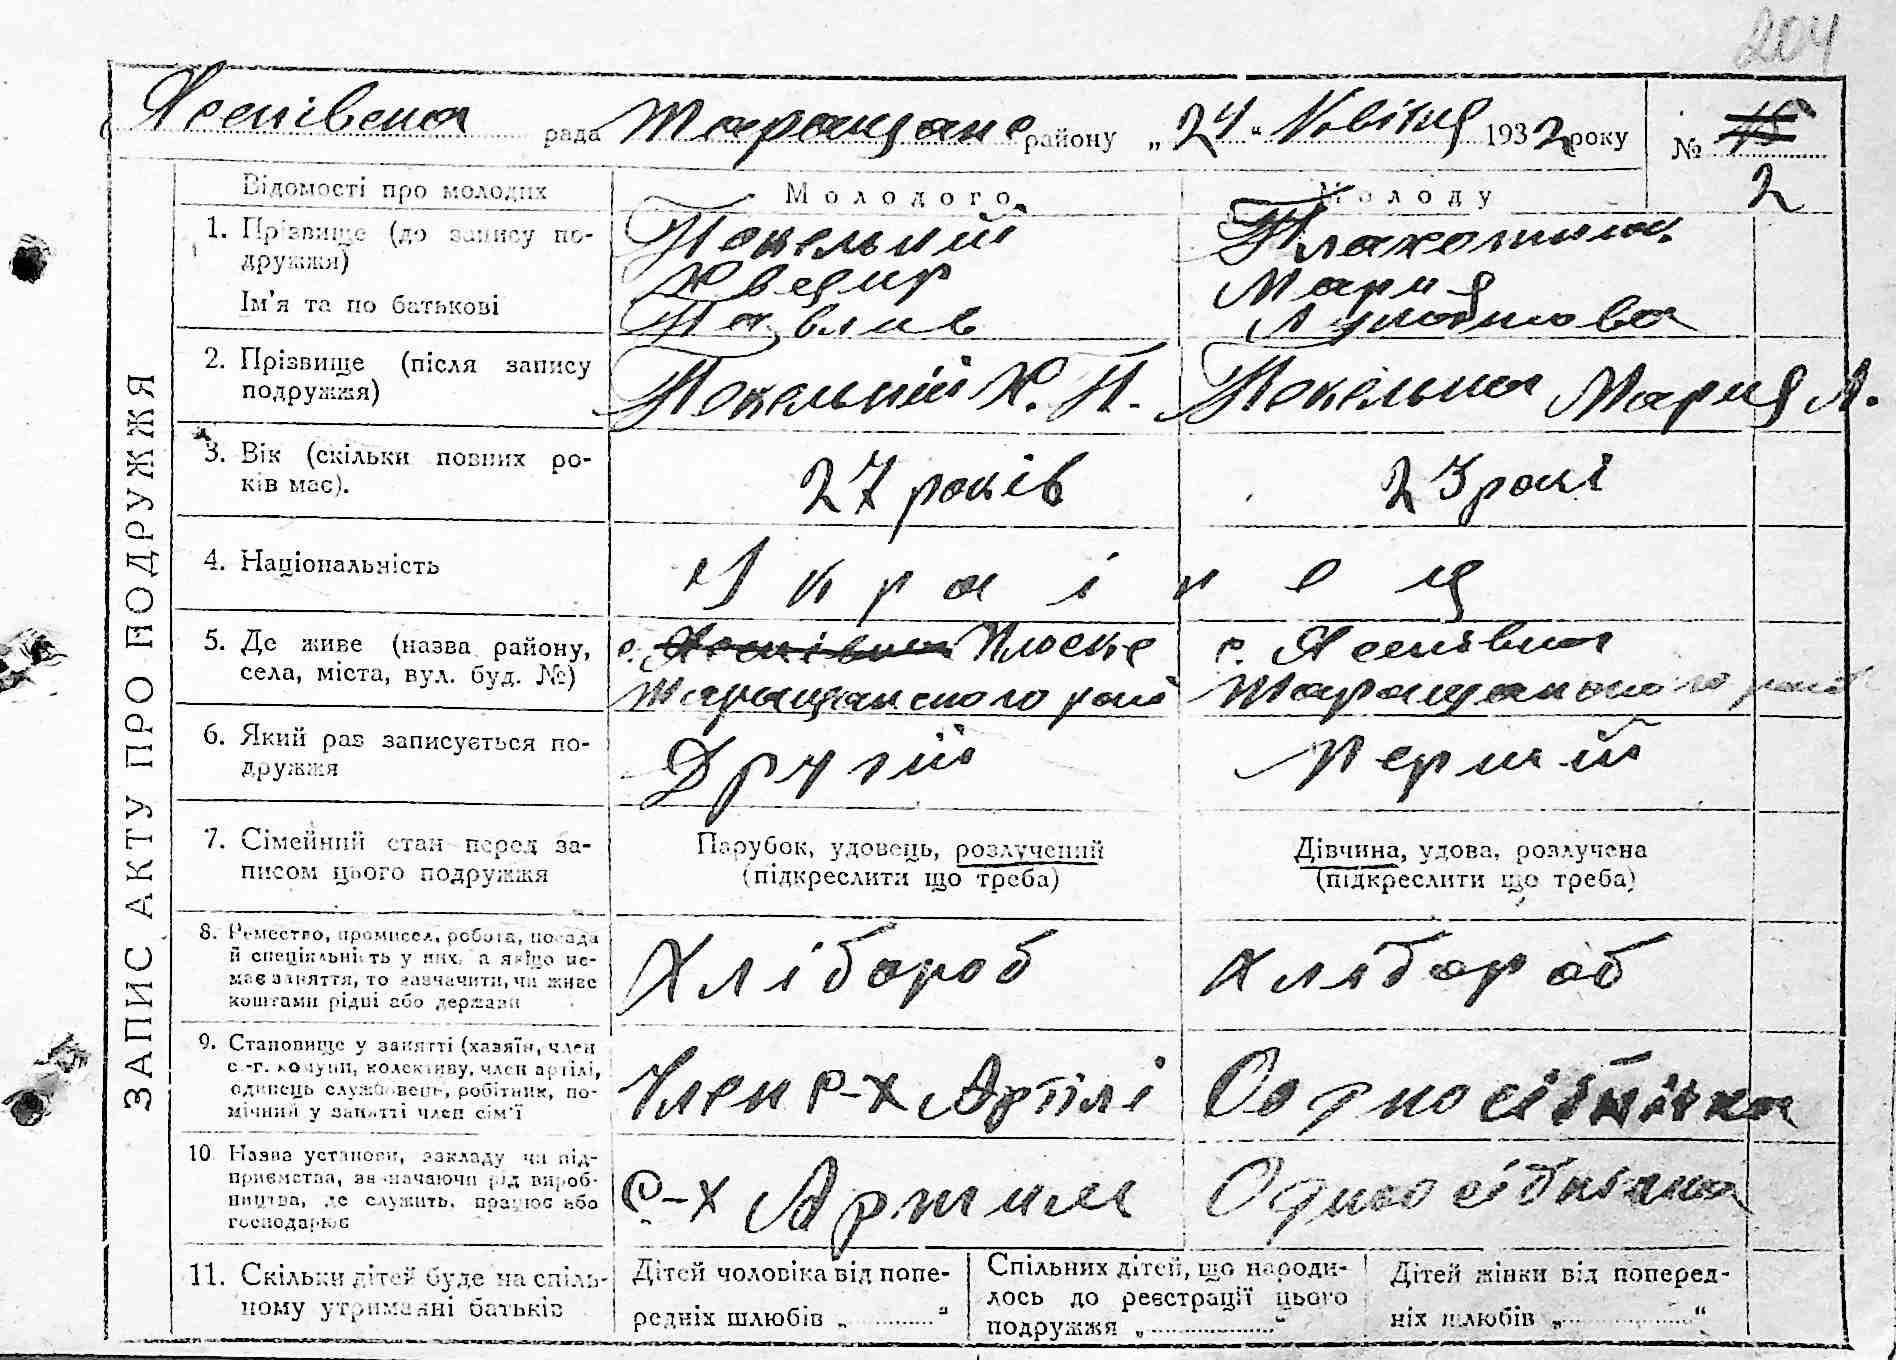 204
рада Таращанс району „24“ Квітня 1932 року №
2
ЗАПИС АКТУ ПРО ПОДРУЖЖЯ
Відомості про молодих Молодого Молоду
1. Прізвище (до запису по-
дружжя)
Ім'я та по батькові
Павлив
Мария
2. Прізвище (після запису
подружжя)
Х. П.
Мария Л.
3. Вік (скільки повних ро-
ків має).
27 років
23 рокі
4. Національність
Украінец
5. Де живе (назва району,
села, міста, вул. буд. №)
с. Плоске
Таращанского рай
с.
Таращанского
6. Який раз записується по-
дружжя
Другій
Першій
7. Сімейний стан перед за-
писом цього подружжя
Парубок, удовець, розлучений
(підкреслити що треба)
Дівчина, удова, розлучена
(підкреслити що треба)
8. Ремество, промисел, робота, посада
й спеціяльність у них, а якщо не-
має заняття, то зазначити, чи живе
коштами рідні або держави
Хлібороб
Хлібороб
9. Становище у занятті (хазяїн, член
с.-г. комуни, колективу, член артілі,
одинець службовець, робітник, по-
мічний у занятті член сім'ї
Член с-х Артілі
10 Назва установи, закладу чи під-
приємства, зазначаючи рід вироб-
ництва, де служить, працює або
господарює
с-х
Односібника
11. Скільки дітей буде на спіль-
ному утриманні батьків
Дітей чоловіка від попе-
редніх шлюбів „ “
Спільних дітей, що народи-
лось до реєстрації цього
подружжя „ “
Дітей жінки від поперед-
ніх шлюбів „ “